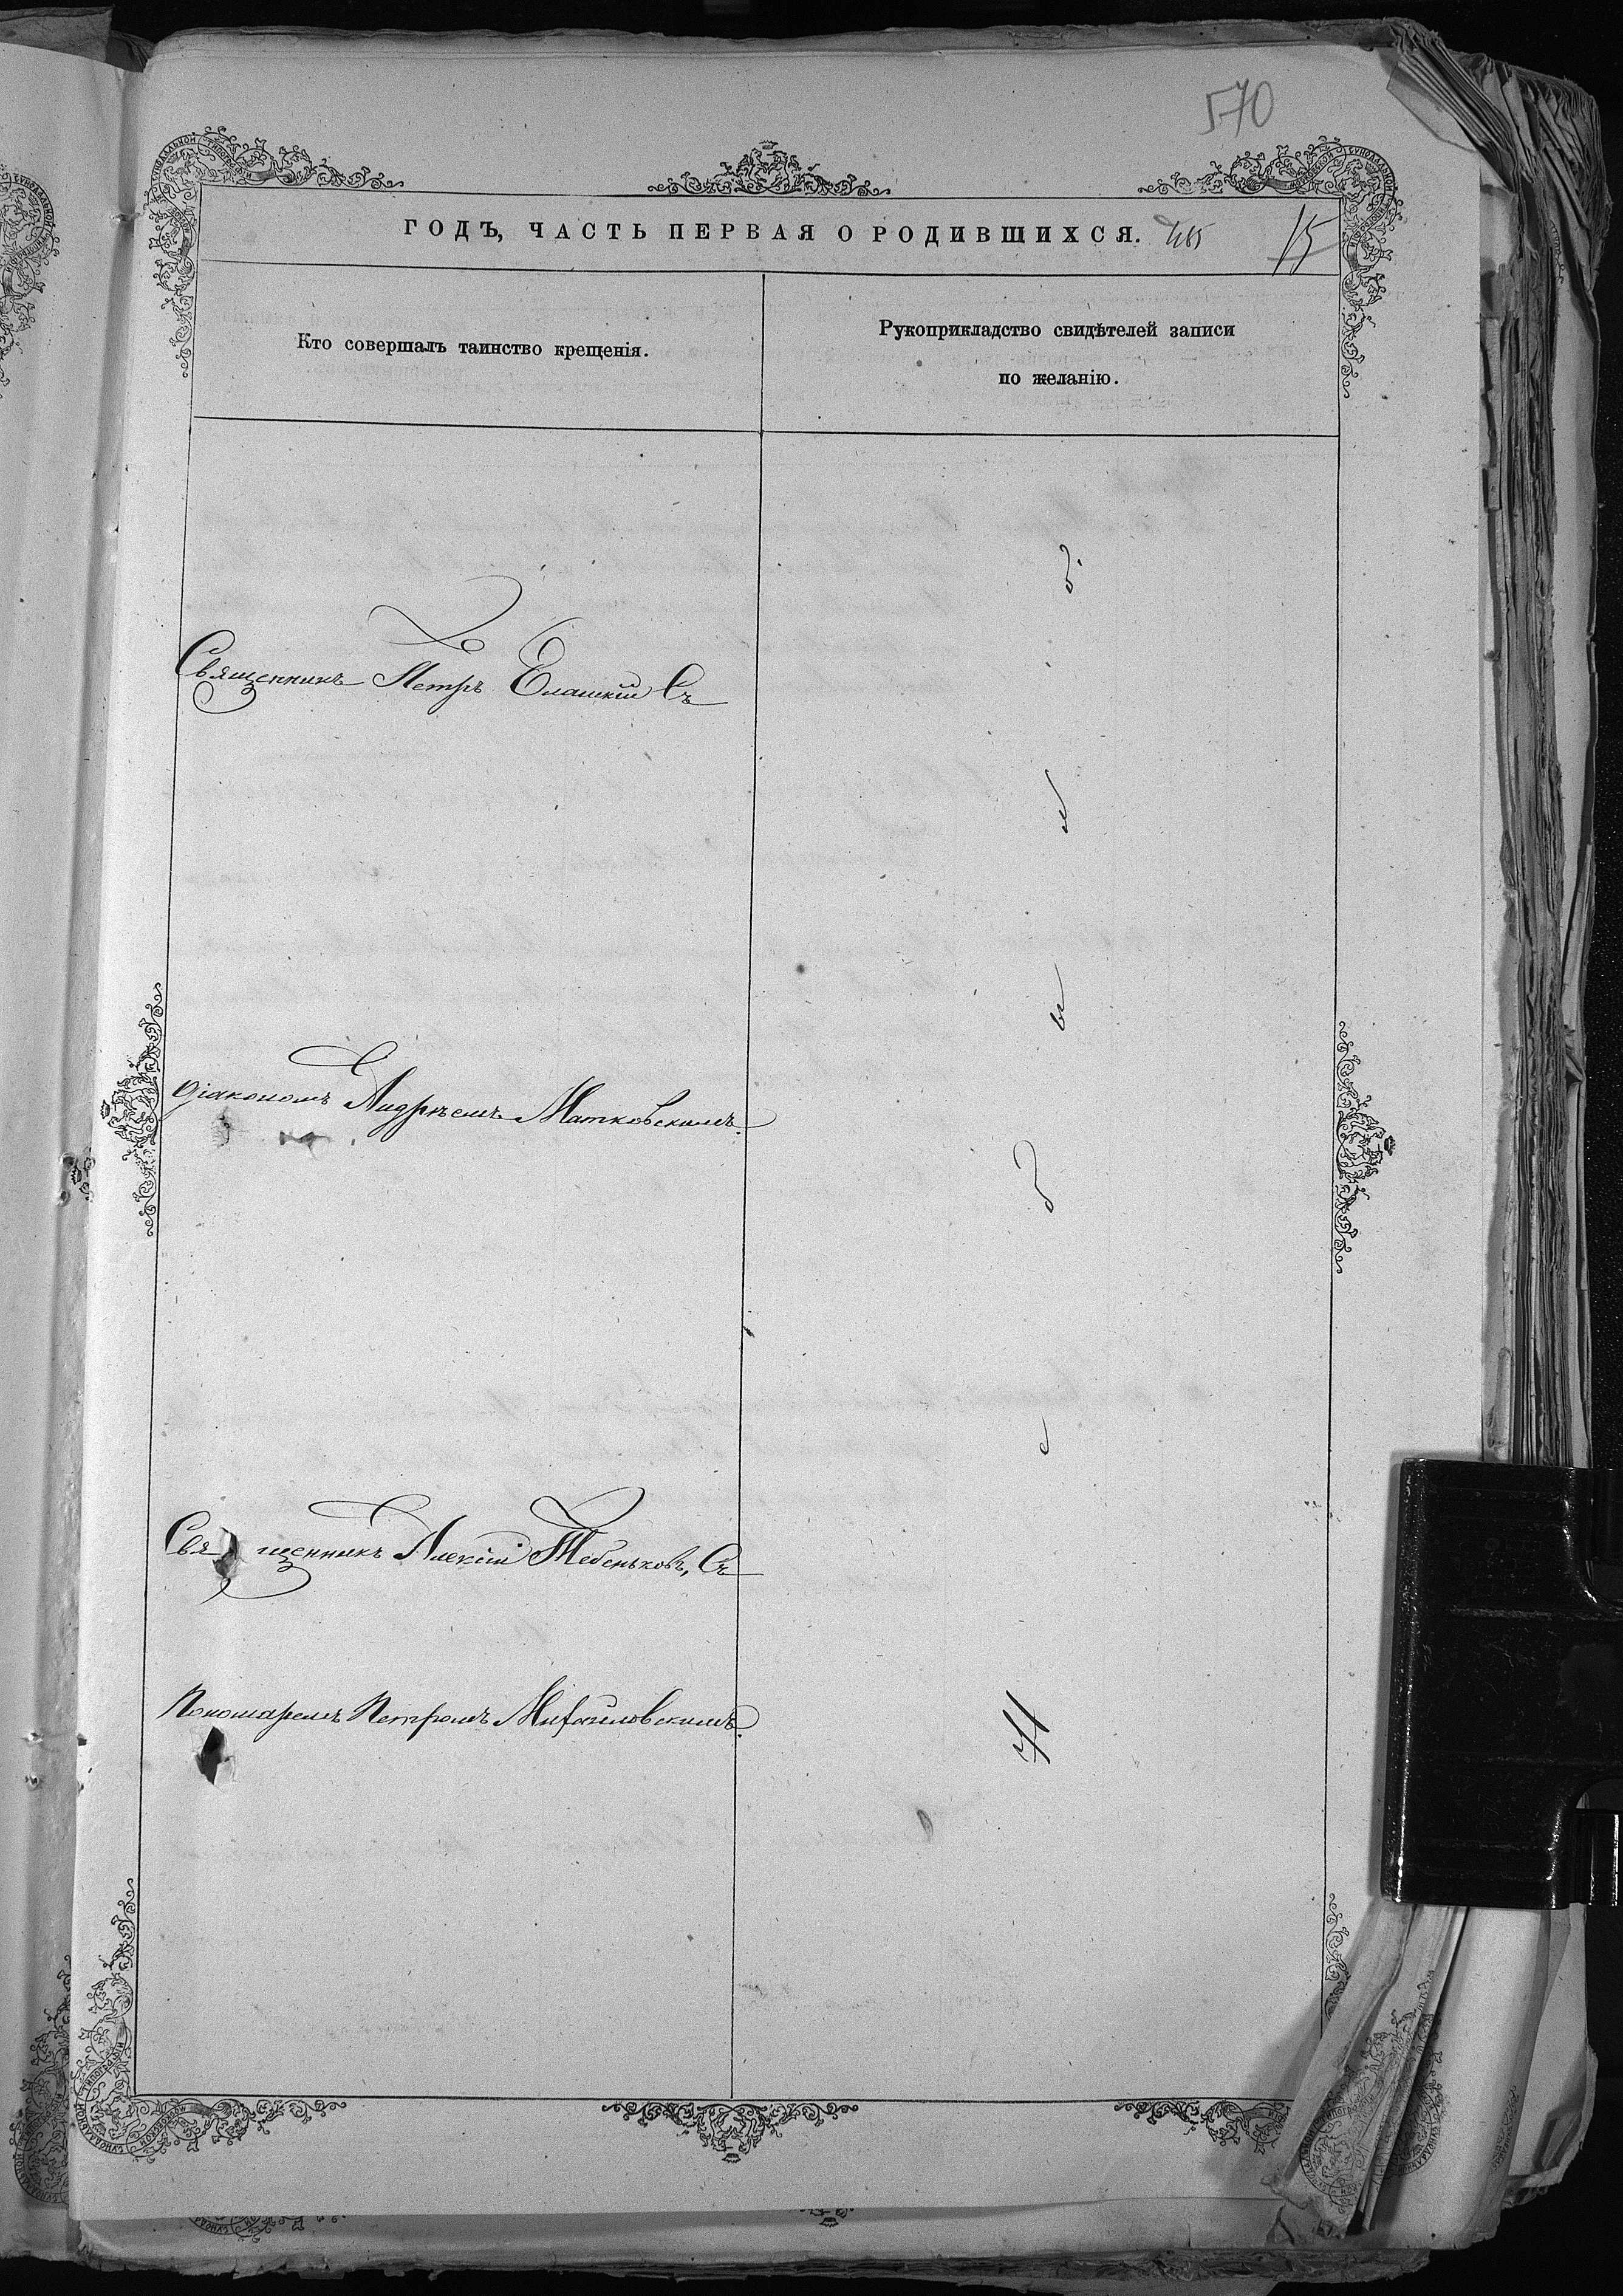 570
ГОДЪ, ЧАСТЬ ПЕРВАЯ О РОДИВШИХСЯ. 15
Кто совершалъ таинство крещенія.
Рукоприкладство свидѣтелей записи
по желанію.
Священникъ Петръ Елашкій Съ
Діакономъ Андреемъ Матковскимъ.
Священникъ Алексій Тебеньковъ, Съ
Пономаремъ Петромъ Михайловскимъ.